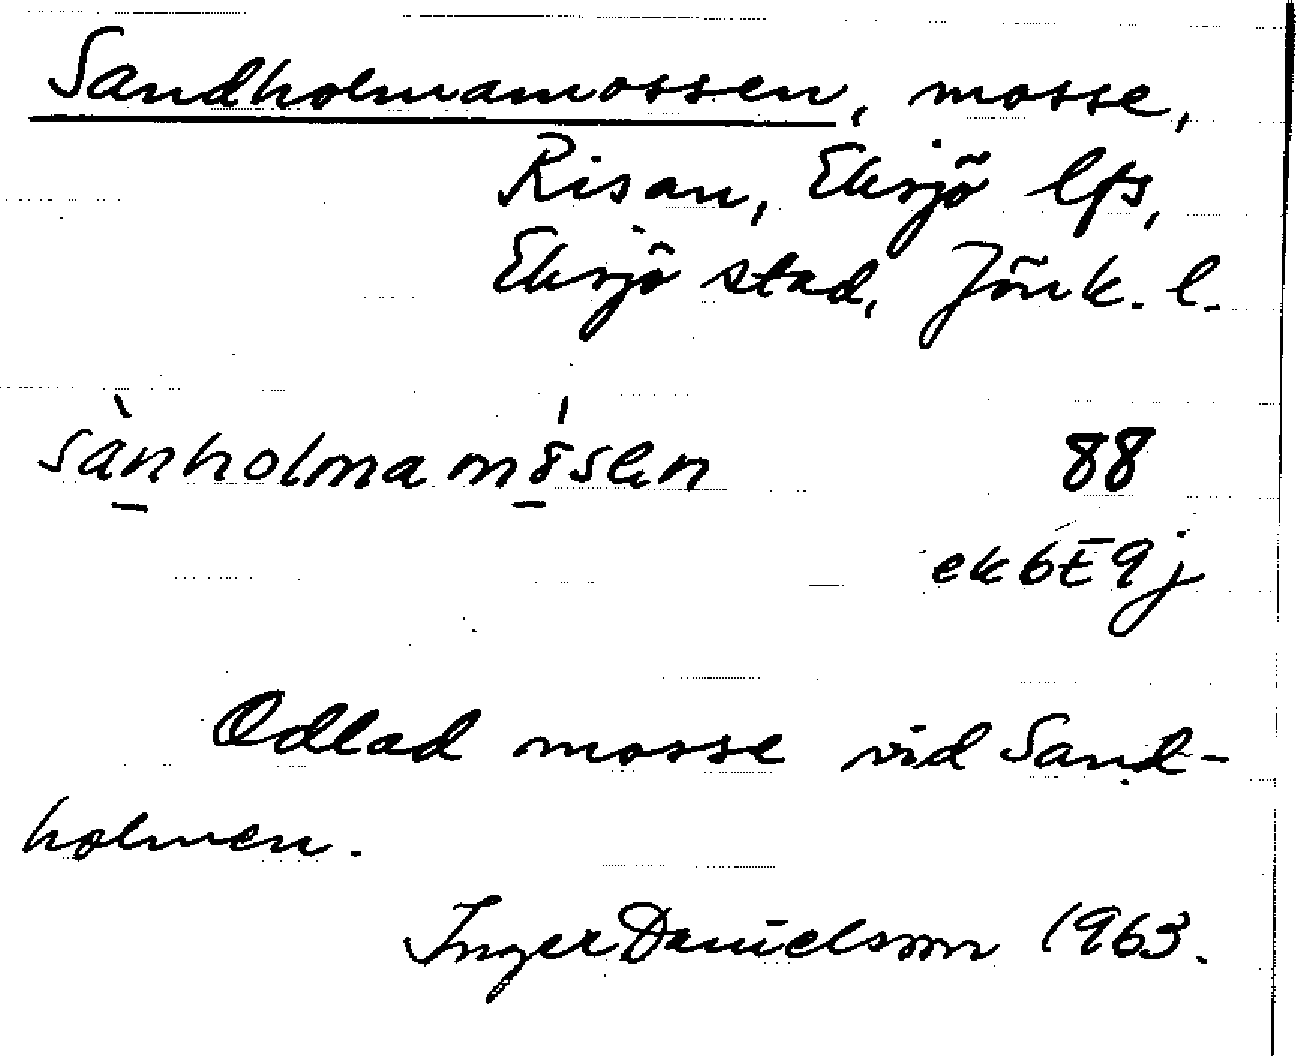 Sandholmamossen, mosse,
Risan, Eksjö lfs,
Eksjö stad, Jönk. l.
sànholmamósen 88
ek 6E9j
Odlad mosse vid Sand-
holmen.
Inger Danielsson 1963.